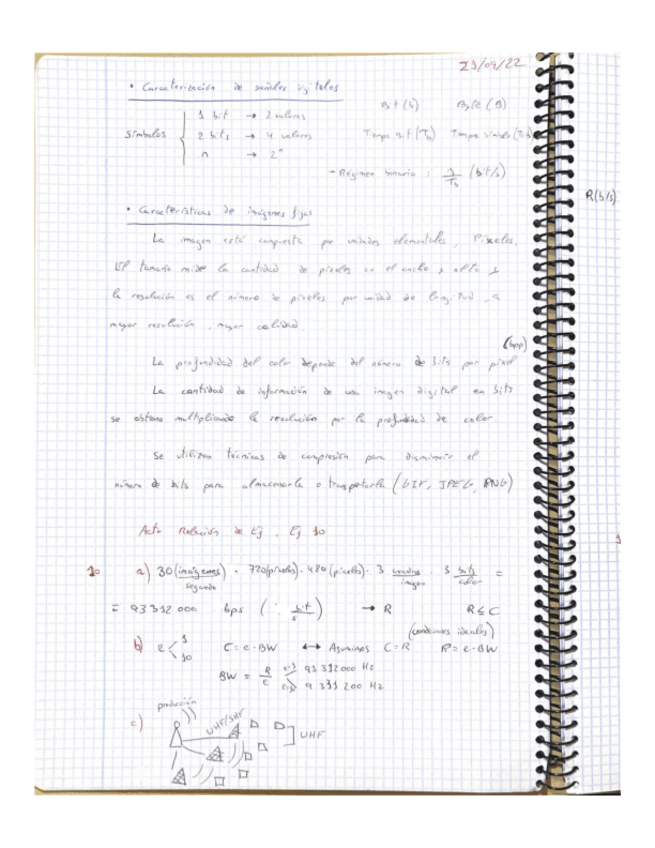 21/09/22
• Caracterización de señales digitales
Bit (b) Byte (B)
símbolos
1 bit → 2 valores
2 bits → 4 valores
n → 2ⁿ
Tiempo Bit (Tb) Tiempo símbolo (Tsb)
→ Régimen binario : 1/Tb (bit/s)
R(b/s)
• Características de imágenes fijas
La imagen está compuesta por unidades elementales, Pixeles.
El tamaño mide la cantidad de pixeles en el ancho y alto y
la resolución es el número de pixeles por unidad de longitud, a
mayor resolución, mayor calidad.
(bpp)
La profundidad del color depende del número de bits por pixel
La cantidad de información de una imagen digital en bits
se obtiene multiplicando la resolución por la profundidad de color
Se utilizan técnicas de compresión para disminuir el
número de bits para almacenarla o transportarla (GIF, JPEG, PNG)
Act. Relación de Ej. Ej 10
10 a) 30 (imágenes/segundo) · 720(pixeles) · 480 (pixeles) · 3 cuadros/imagen · 3 bits/color =
= 93 312 000 bps ( bit/s ) → R R ≤ C
(condiciones ideales)
b) e < 1 10 C = e·BW ↔ Asumimos C = R R = e·BW
BW = R/e e=1 93 312 000 Hz
e=10 9 331 200 Hz
c) producción
UHF/SHF
UHF